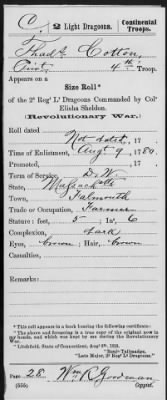 C. 2 Light Dragoons. Continental Troops.
Thads. Cotton
Pivt. 4th Troop.
Appears on a
Size Roll*
of the 2d Reg't L't Dragoons Commanded by Col.
Elisha Sheldon.
(Revolutionary War.)
Roll dated
Not dated, 17
Time of Enlistment, Augt 9, 1780.
Promoted, , 17
Term of Service, D. W.
State, Massachtts
Town, Falmouth
Trade or Occupation, Farmer
Stature: feet, 5 In., 6
Complexion, dark
Eyes, brown; Hair, brown
Casualties,
Remarks:
*This roll appears in a book bearing the following certificate:
"The above and foregoing is a true copy of the original now in my hands, and which was kept by me during the Revolutionary War.
"Litchfield, State of Connecticut, Aug't 8th, 1832.
"Benj'n Tallmadge,
"Late Major, 2d Reg't L't Dragoons."
Page 28. Wm R. Goodman
(555) Copyist.